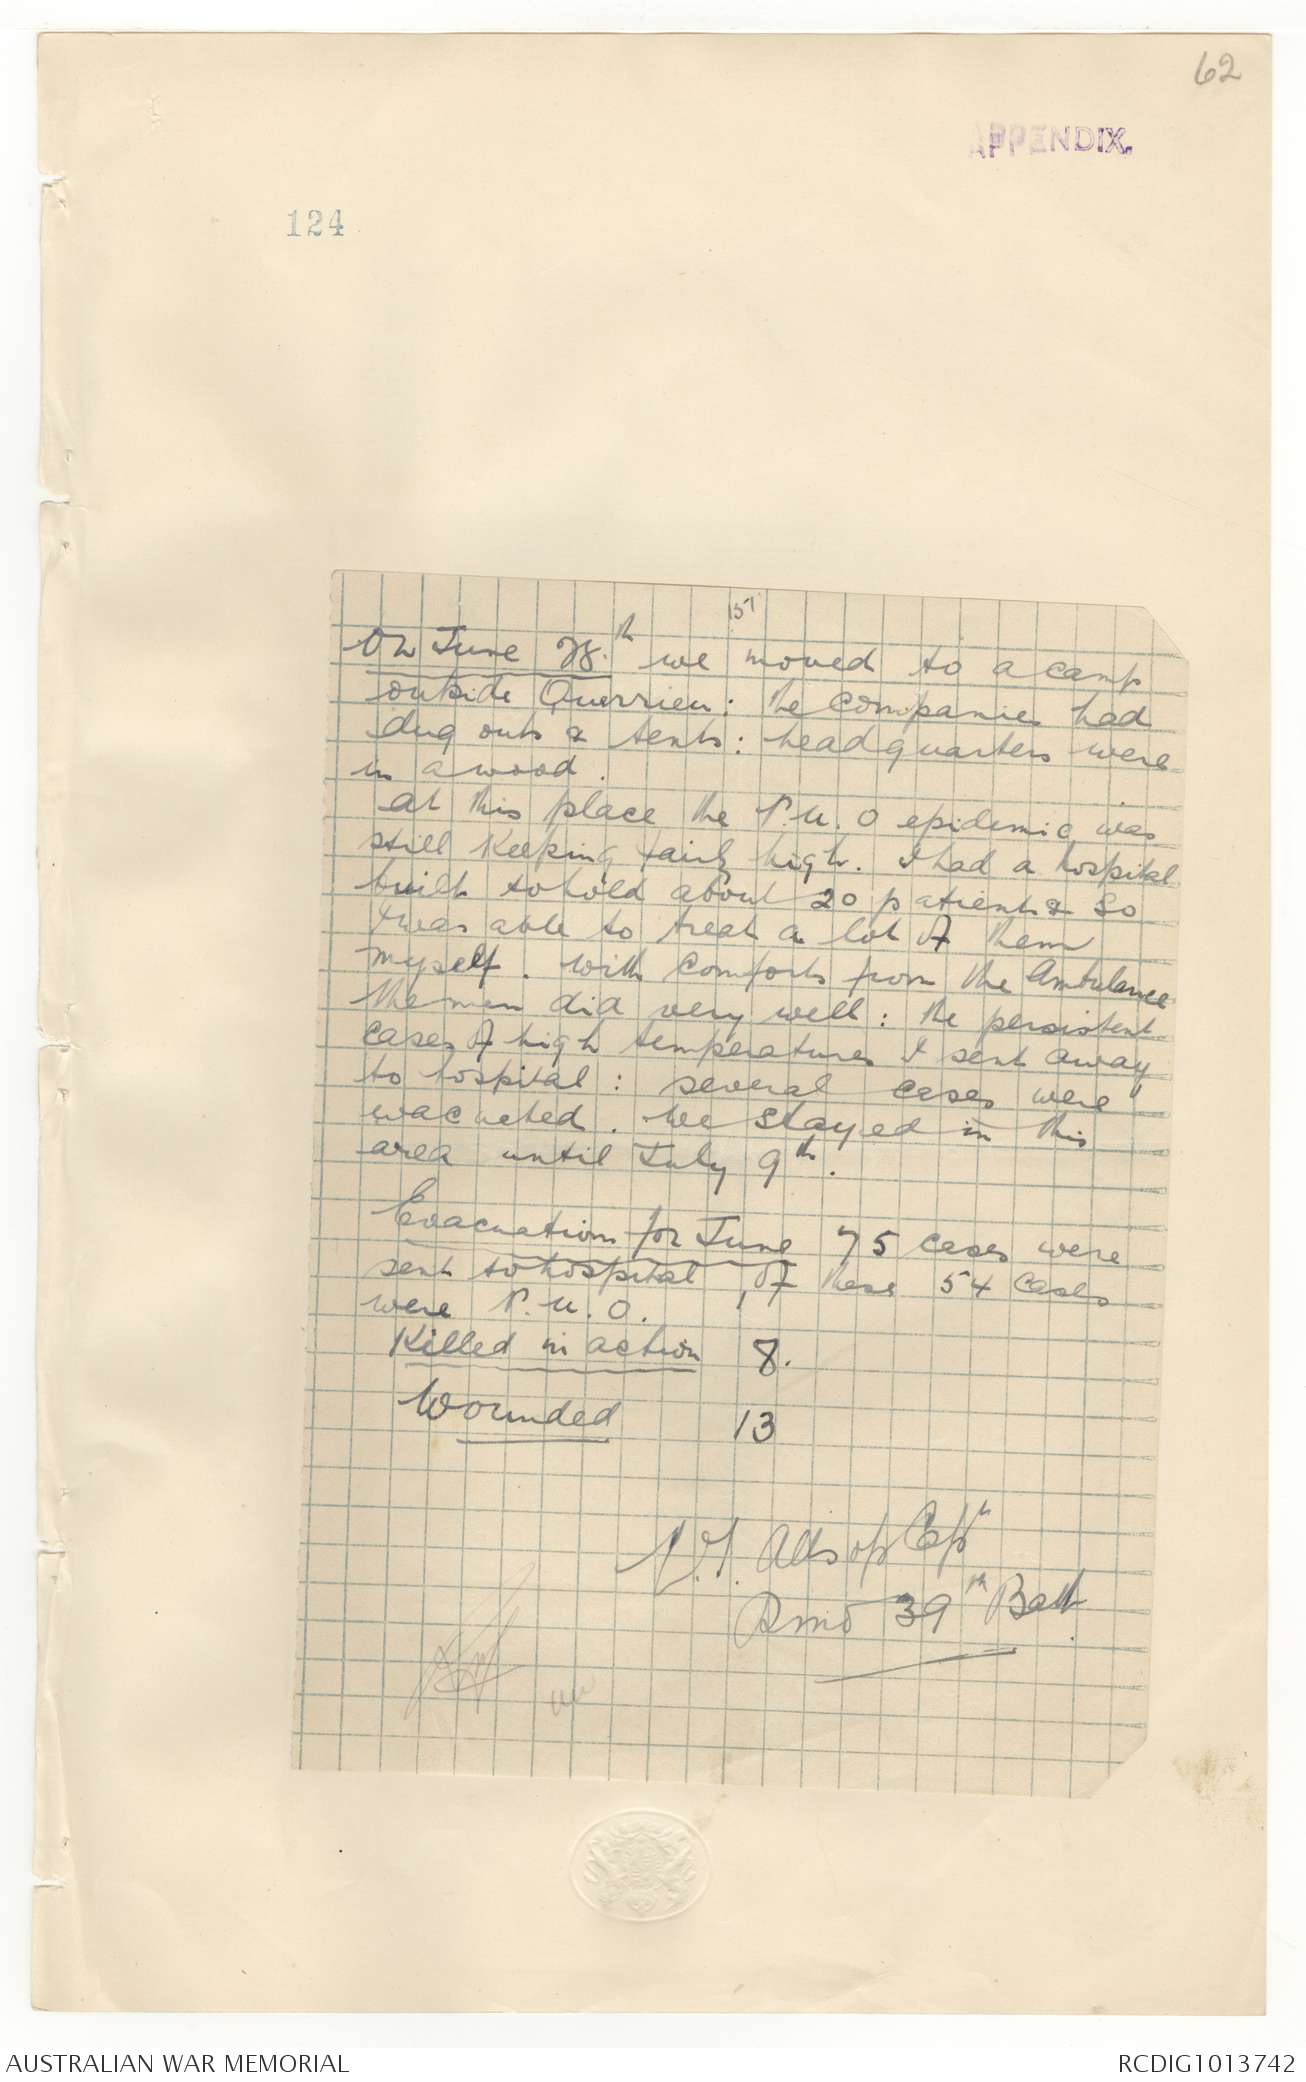 62
APPENDIX.
124
157
On June 28.th we moved to a camp
outside Querrieu: the companies had
dug outs & tents: headquarters were
in a wood.
at this place the P.U.O epidemic was
still keeping fairly high. I had a hospital
built to hold about 20 patients & so
I was able to treat a lot of them
myself. With comforts from the Ambulance
the men did very well: the persistent
cases of high temperatures I sent away
to hospital: several cases were
evacuated. We stayed in this
area until July 9th.
Evacuations for June 75 cases were
sent to hospital, of these 54 cases
were P.U.O.
Killed in action 8.
Wounded 13
Allsop Captn
RMO 39th Batt.
AUSTRALIAN WAR MEMORIAL
RCDIG1013742